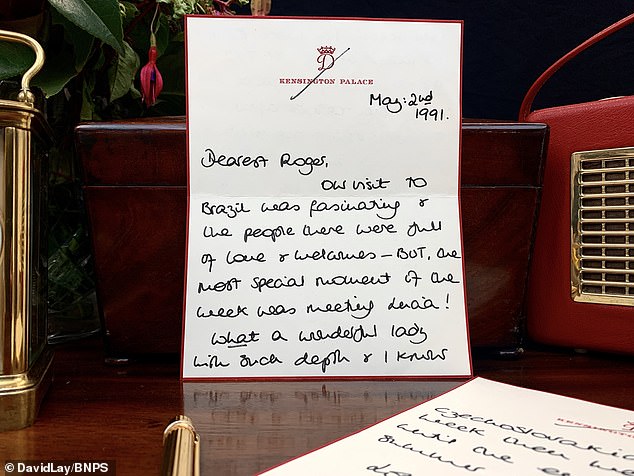 D
KENSINGTON PALACE
May: 2nd
1991.
Dearest Roger,
our visit to
Brazil was fascinating &
the people there were full
of love & welcomes – BUT, the
most special moment of the
week was meeting Lucia!
What a wonderful lady
with such depth & I know
KENSINGTON
Czechoslovakia
week then
until the
summer
© DavidLay/BNPS